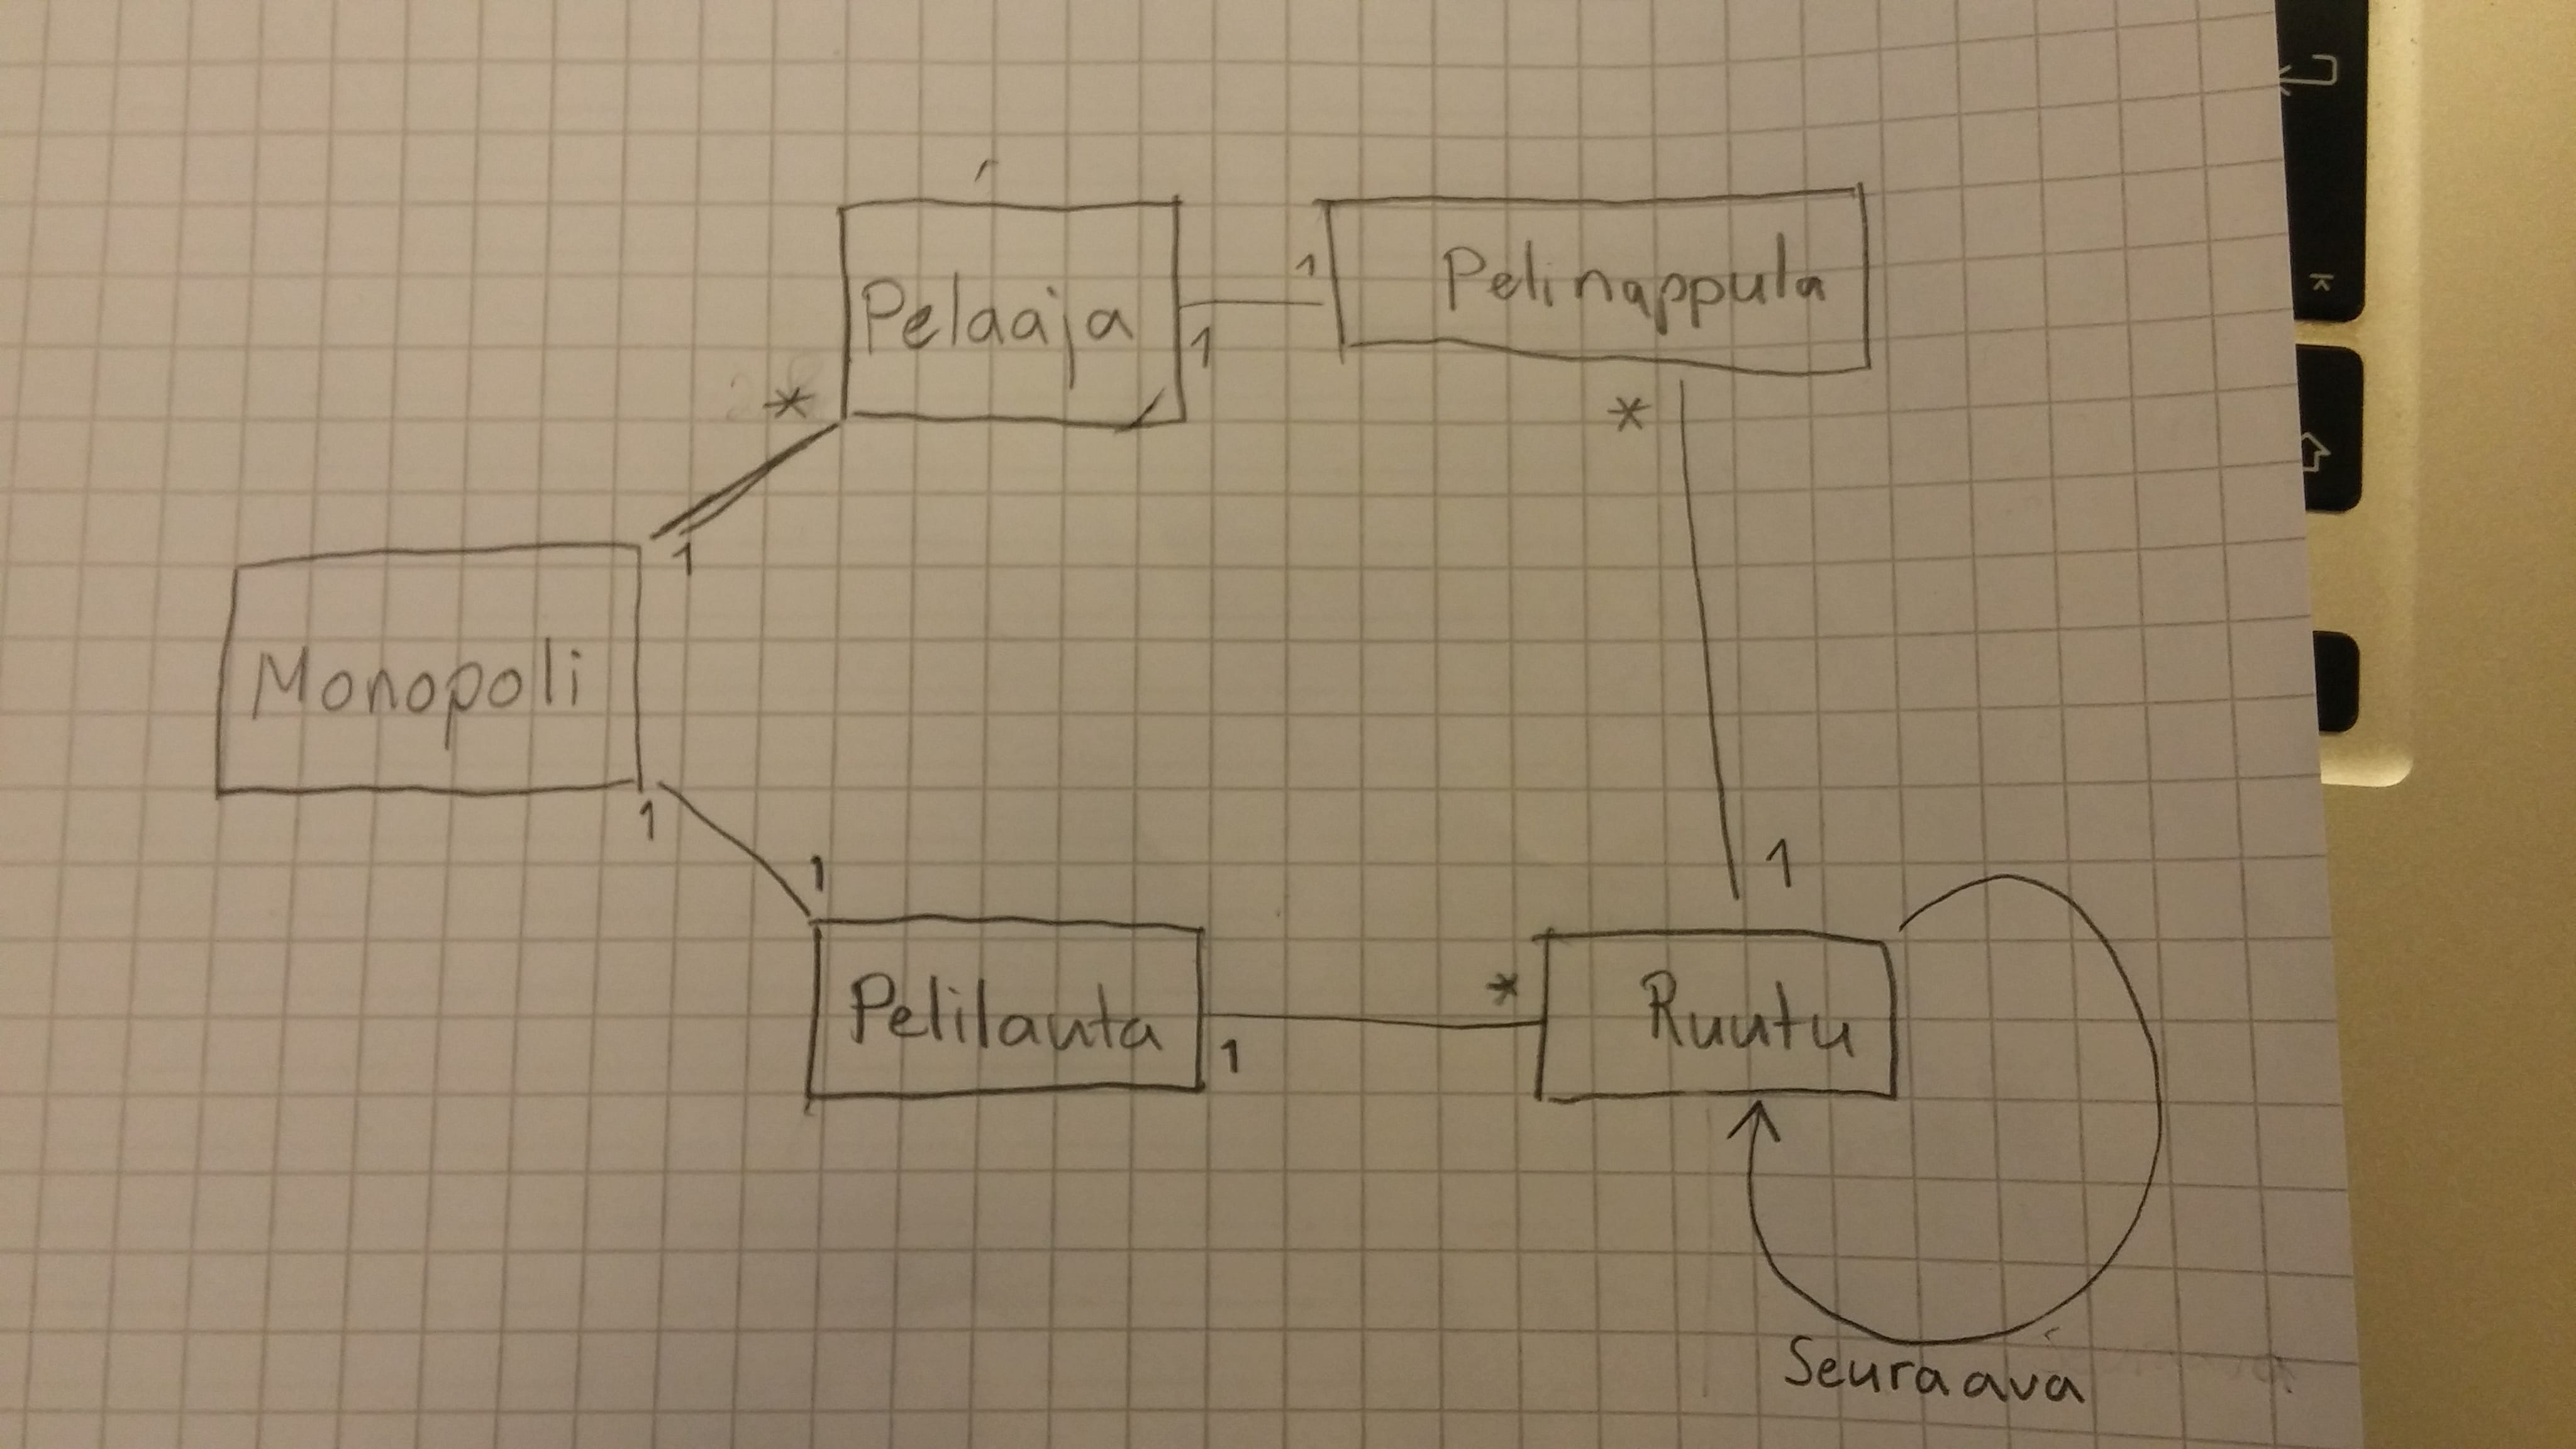 Pelaaja
1
1
Pelinappula
*
*
1
Monopoli
1
1
1
Pelilanta
1
*
Ruutu
Seuraava